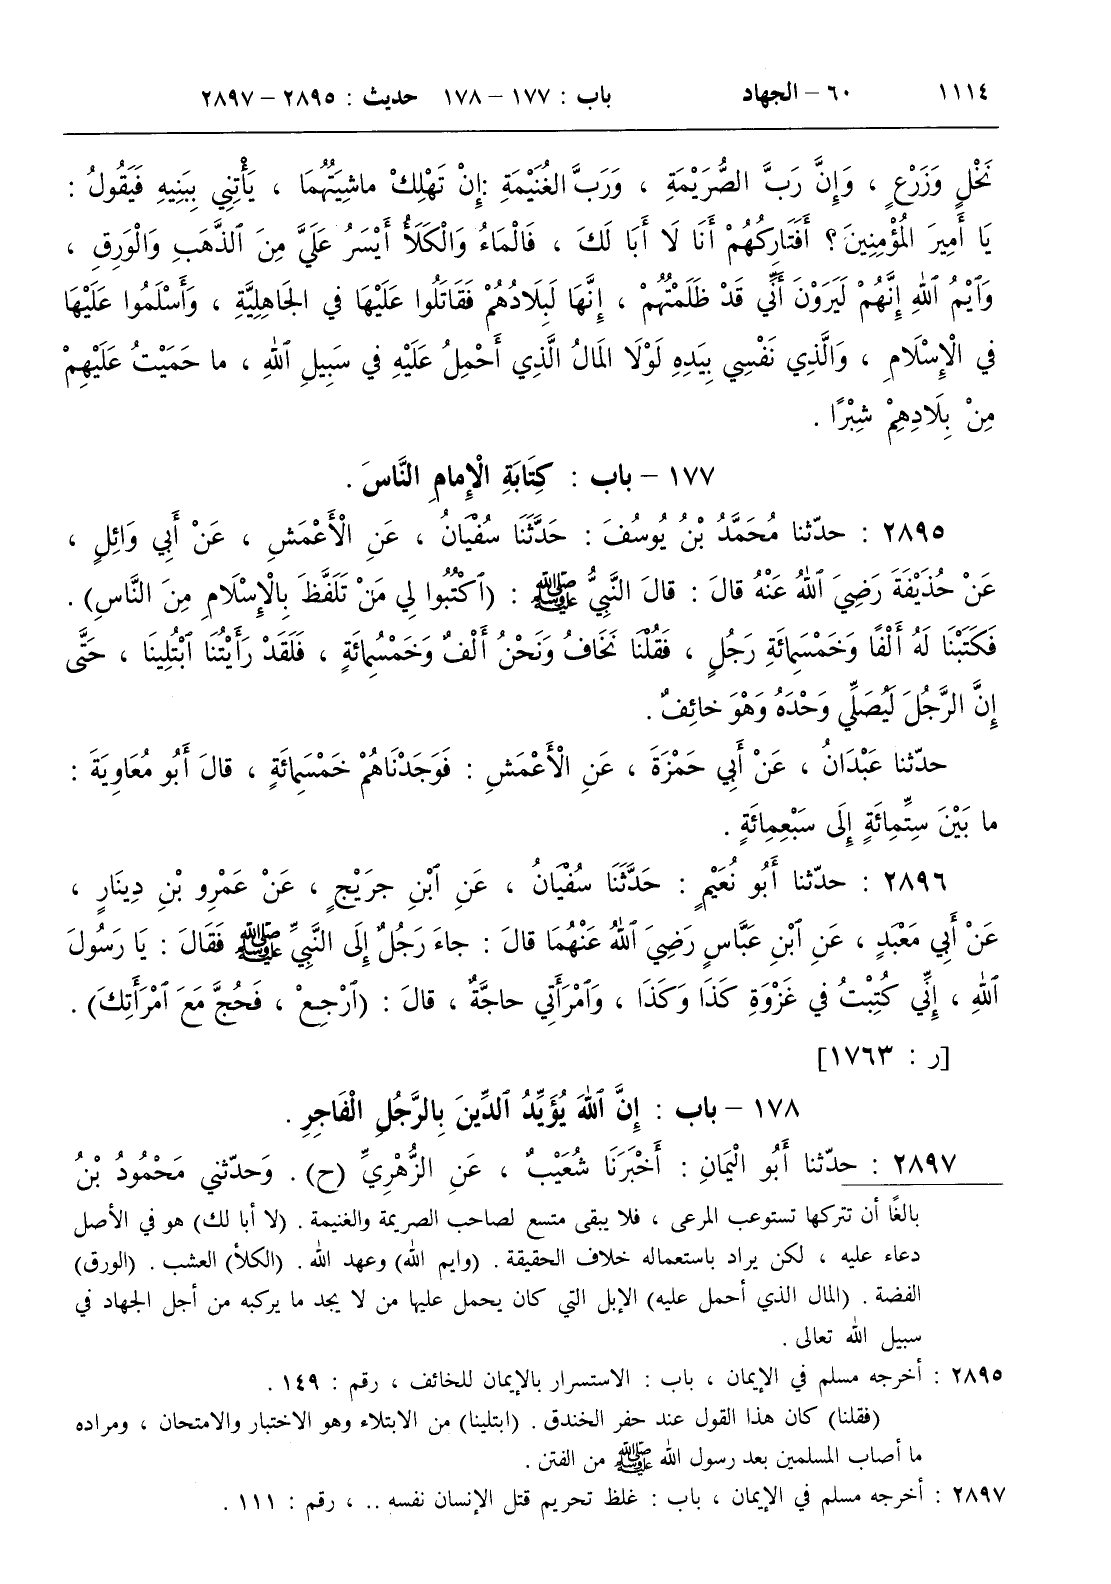 ١١١٤ ٦٠ – الجهاد باب : ١٧٧ – ١٧٨ حديث : ٢٨٩٥ – ٢٨٩٧
نَخْلٍ وَزَرْعٍ ، وَإِنَّ رَبَّ الصُّرَيْمَةِ ، وَرَبَّ الْغُنَيْمَةِ : إِنْ تَهْلِكْ ماشِيَتُهُمَا ، يَأْتِنِي بِبَنِيهِ فَيَقُولُ :
يَا أَمِيرَ الْمُؤْمِنِينَ ؟ أَفَتَارِكُهُمْ أَنَا لَا أَبَا لَكَ ، فَالْمَاءُ وَالْكَلَأُ أَيْسَرُ عَلَيَّ مِنَ ٱلذَّهَبِ وَالْوَرِقِ ،
وَٱيْمُ ٱللهِ إِنَّهُمْ لَيَرَوْنَ أَنِّي قَدْ ظَلَمْتُهُمْ ، إِنَّهَا لَبِلَادُهُمْ فَقَاتَلُوا عَلَيْهَا في الجَاهِلِيَّةِ ، وَأَسْلَمُوا عَلَيْهَا
في الْإِسْلَامِ ، وَالَّذِي نَفْسِي بِيَدِهِ لَوْلَا المَالُ الَّذِي أَحْمِلُ عَلَيْهِ في سَبِيلِ ٱللهِ ، ما حَمَيْتُ عَلَيْهِمْ
مِنْ بِلَادِهِمْ شِبْرًا .
١٧٧ – باب : كِتَابَةِ الْإِمامِ النَّاسَ .
٢٨٩٥ : حدّثنا مُحَمَّدُ بْنُ يُوسُفَ : حَدَّثَنَا سُفْيَانُ ، عَنِ الْأَعْمَشِ ، عَنْ أَبِي وَائِلٍ ،
عَنْ حُذَيْفَةَ رَضِيَ ٱللهُ عَنْهُ قالَ : قالَ النَّبِيُّ ﷺ : (ٱكْتُبُوا لِي مَنْ تَلَفَّظَ بِالْإِسْلَامِ مِنَ النَّاسِ) .
فَكَتَبْنَا لَهُ أَلْفًا وَخَمْسَمِائَةِ رَجُلٍ ، فَقُلْنَا نَخَافُ وَنَحْنُ أَلْفٌ وَخَمْسُمِائَةٍ ، فَلَقَدْ رَأَيْتُنَا ٱبْتُلِينَا ، حَتَّى
إِنَّ الرَّجُلَ لَيُصَلِّي وَحْدَهُ وَهْوَ خائِفٌ .
حدّثنا عَبْدَانُ ، عَنْ أَبِي حَمْزَةَ ، عَنِ الْأَعْمَشِ : فَوَجَدْنَاهُمْ خَمْسَمِائَةٍ ، قالَ أَبُو مُعَاوِيَةَ :
ما بَيْنَ سِتِّمِائَةٍ إِلَى سَبْعِمِائَةٍ .
٢٨٩٦ : حدّثنا أَبُو نُعَيْمٍ : حَدَّثَنَا سُفْيَانُ ، عَنِ ٱبْنِ جرَيْجٍ ، عَنْ عَمْرِو بْنِ دِينَارٍ ،
عَنْ أَبِي مَعْبَدٍ ، عَنِ ٱبْنِ عَبَّاسٍ رَضِيَ ٱللهُ عَنْهُمَا قالَ : جاءَ رَجُلٌ إِلَى النَّبِيِّ ﷺ فَقَالَ : يَا رَسُولَ
ٱللهِ ، إِنِّي كُتِبْتُ في غَزْوَةِ كَذَا وَكَذَا ، وَٱمْرَأَتِي حاجَّةٌ ، قالَ : (ٱرْجِعْ ، فَحُجَّ مَعَ ٱمْرَأَتِكَ) .
[ر : ١٧٦٣]
١٧٨ – باب : إِنَّ ٱللهَ يُؤَيِّدُ ٱلدِّينَ بِالرَّجُلِ الْفَاجِرِ .
٢٨٩٧ : حدّثنا أَبُو الْيَمَانِ : أَخْبَرَنَا شُعَيْبٌ ، عَنِ الزُّهْرِيِّ (ح) . وَحدّثني مَحْمُودُ بْنُ
بالغًا أن تتركها تستوعب المرعى ، فلا يبقى متسع لصاحب الصريمة والغنيمة . (لا أبا لك) هو في الأصل
دعاء عليه ، لكن يراد باستعماله خلاف الحقيقة . (وايم الله) وعهد الله . (الكلأ) العشب . (الورق)
الفضة . (المال الذي أحمل عليه) الإبل التي كان يحمل عليها من لا يجد ما يركبه من أجل الجهاد في
سبيل الله تعالى .
٢٨٩٥ : أخرجه مسلم في الإيمان ، باب : الاستسرار بالإيمان للخائف ، رقم : ١٤٩ .
(فقلنا) كان هذا القول عند حفر الخندق . (ابتلينا) من الابتلاء وهو الاختبار والامتحان ، ومراده
ما أصاب المسلمين بعد رسول الله ﷺ من الفتن .
٢٨٩٧ : أخرجه مسلم في الإيمان ، باب : غلظ تحريم قتل الإنسان نفسه .. ، رقم : ١١١ .